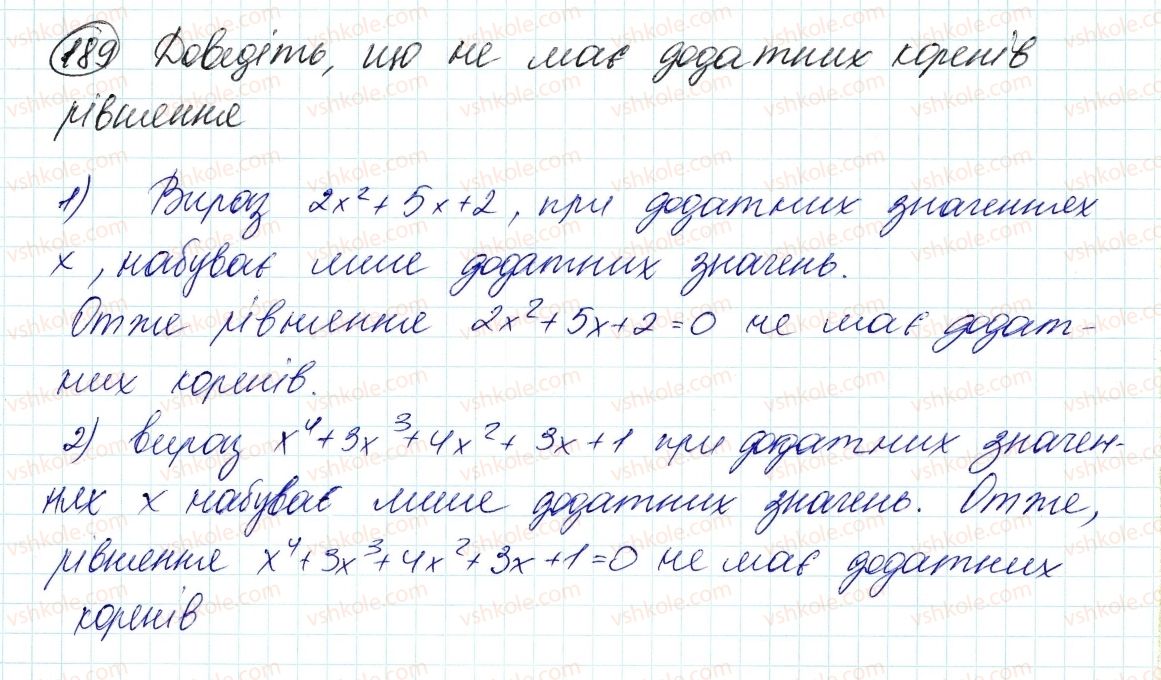 189 Доведіть, що не має додатних коренів
рівняння
1) Вираз 2x² + 5x + 2, при додатних значеннях
x, набуває лише додатних значень.
Отже рівняння 2x² + 5x + 2 = 0 не має додат-
них коренів.
2) вираз x⁴ + 3x³ + 4x² + 3x + 1 при додатних значен-
нях x набуває лише додатних значень. Отже,
рівняння x⁴ + 3x³ + 4x² + 3x + 1 = 0 не має додатних
коренів